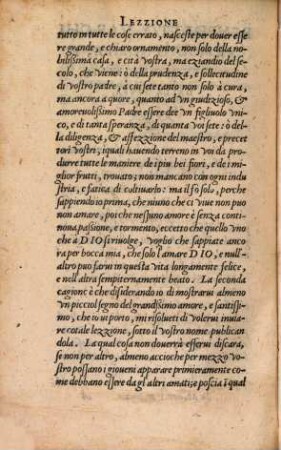 LEZZIONE
tutto in tutte le cose errato, nasceste per dover esse
re grande, e chiaro ornamento, non solo della no-
bilissima casa, e città vostra, ma eziandio del se-
colo, che viene: ò della prudenza, e sollecitudine
di vostro padre, a cui sete tanto non solo à cura,
ma ancora à quore, quanto ad un giudizioso, &
amorevolissimo Padre essere dee un figliuolo uni-
co, e di tanta speranza, di quanta voi sete: ò del-
la diligenza, & affezzione del maestro, e precet
tori vostri; i quali havendo terreno in voi da produr-
re tutte le maniere de i piu bei fiori, e de i mi-
glior frutti, trovato; non mancano con ogni indu
stria, e fatica di cultivarlo: ma il fò solo, perche
sappiendo io prima, che niuno che ci vive non puo
non amare, poi che nessuno amore è senza conti-
nova passione, e tormento, eccetto che quello uno
che a DIO si rivolge, voglio che sappiate anco-
ra per bocca mia, che solo l'amare DIO, e null'-
altro puo farui in questa vita lungamente felice, e
nell'altra sempiternamente beato. La seconda
cagione è che disiderando io di mostrarvi almeno
un picciol segno del grandissimo amore, e santissi-
mo, che io vi porto, mi risolvei di volervi invia-
re cotale lezzione, sotto il vostro nome publican
dola. La qual cosa non doverrà esservi discara,
se non per altro, almeno accioche per mezzo vo-
stro possano i gioveni apparare primieramente co-
me debbano essere da gl'altri amati; e poscia i qual